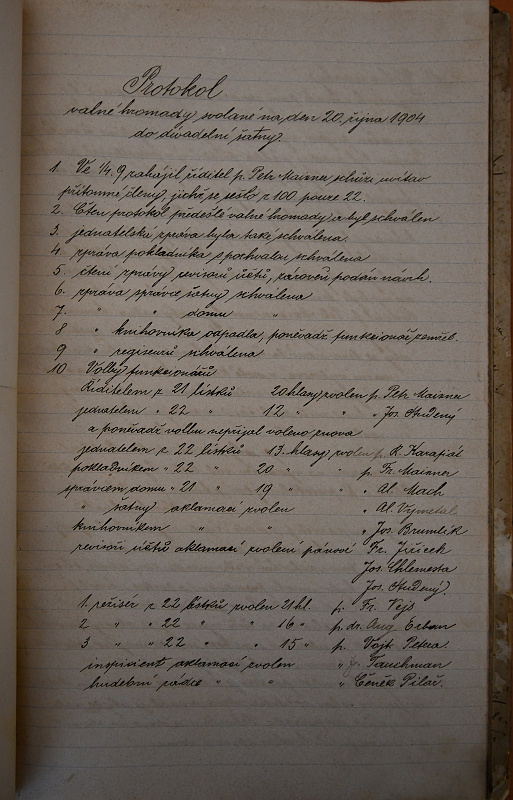 Protokol
valné hromady svolané na den 20. října 1904
do divadelní šatny.
1. Ve 1/4 9 zahájil ředitel p. Petr Maizner schůzi uvítav
přítomné členy, jichž se sešlo z 100 pouze 22.
2. Čten protokol předešlé valné hromady a byl schválen
3. jednatelská zpráva byla také schválena.
4. zpráva pokladníka s pochvalou schválena
5. čtení zprávy revisorů účtů, zároveň podán návrh.
6. zpráva správce šatny schválena
7. " " domu "
8 " knihovníka odpadla, poněvadž funkcionář zemřel.
9 " regisseurů schválena
10 Volby funkcionářů
Ředitelem z 21 lístků 20 hlasy zvolen p. Petr Maizner
jednatelem " 22 " 12 " " " Jos. Studený
a poněvadž volbu nepřijal voleno znova
jednatelem z 22 lístků 13. hlasy zvolen p. R. Karafiát
pokladníkem " 22 " 20 " " p. Fr. Maizner
správcem domu " 21 " 19 " " " Al. Mach
" šatny aklamací zvolen " Al. Vymetal
knihovníkem " " " Jos. Brumlík
revisoři účtů aklamací zvoleni pánové Fr. Jiříček
Jos. Chlemesta
Jos. Studený.
1. režisér z 22 lístků zvolen 21 hl. p. Fr. Vejs
2 " " 22 " " 16 " p. dr. Aug Erban
3 " " 22 " " 15 " p. Vojt. Petera.
inspicient aklamací zvolen " Tauchman
hudební rádce " " " Čeněk Pilař.